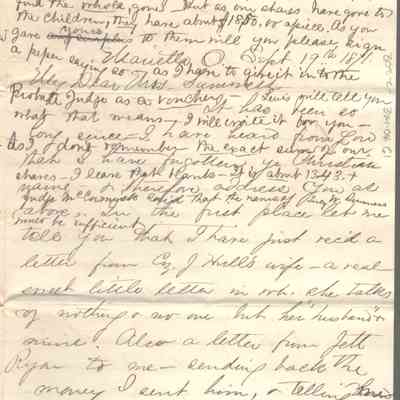 find the whole, gone. But as our shares have gone to
the Children, they have about $1850. or apiece. As you
gave money to them will you please sign
a paper saying so
Marietta, O. Sept 19th 181
as I have to give it in to the
My Dear Mrs.
Probate Judge as a voucher, Lewis will tell you
It has been so
what that means. I will write it for you -
long since I have heard from
As I don't remember the exact sum for our
that I have forgotten yr. Christian
shares - I leave that blank - It is about 1343.+
name, & therefore address you as
Judge McCormick said that the name of
above. In the first place let me
must be sufficient
tell you that I have just rec'd a
letter from Cy. J Hall's wife - a real
sweet little letter in wh. she talks
of nothing & no one but her "husband" &
mine. Also a letter from Jett
Ryan to me - sending back the
money I sent him, & telling